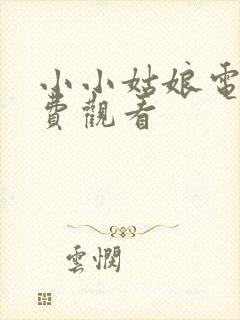 小小姑娘電
費觀看
雲憫